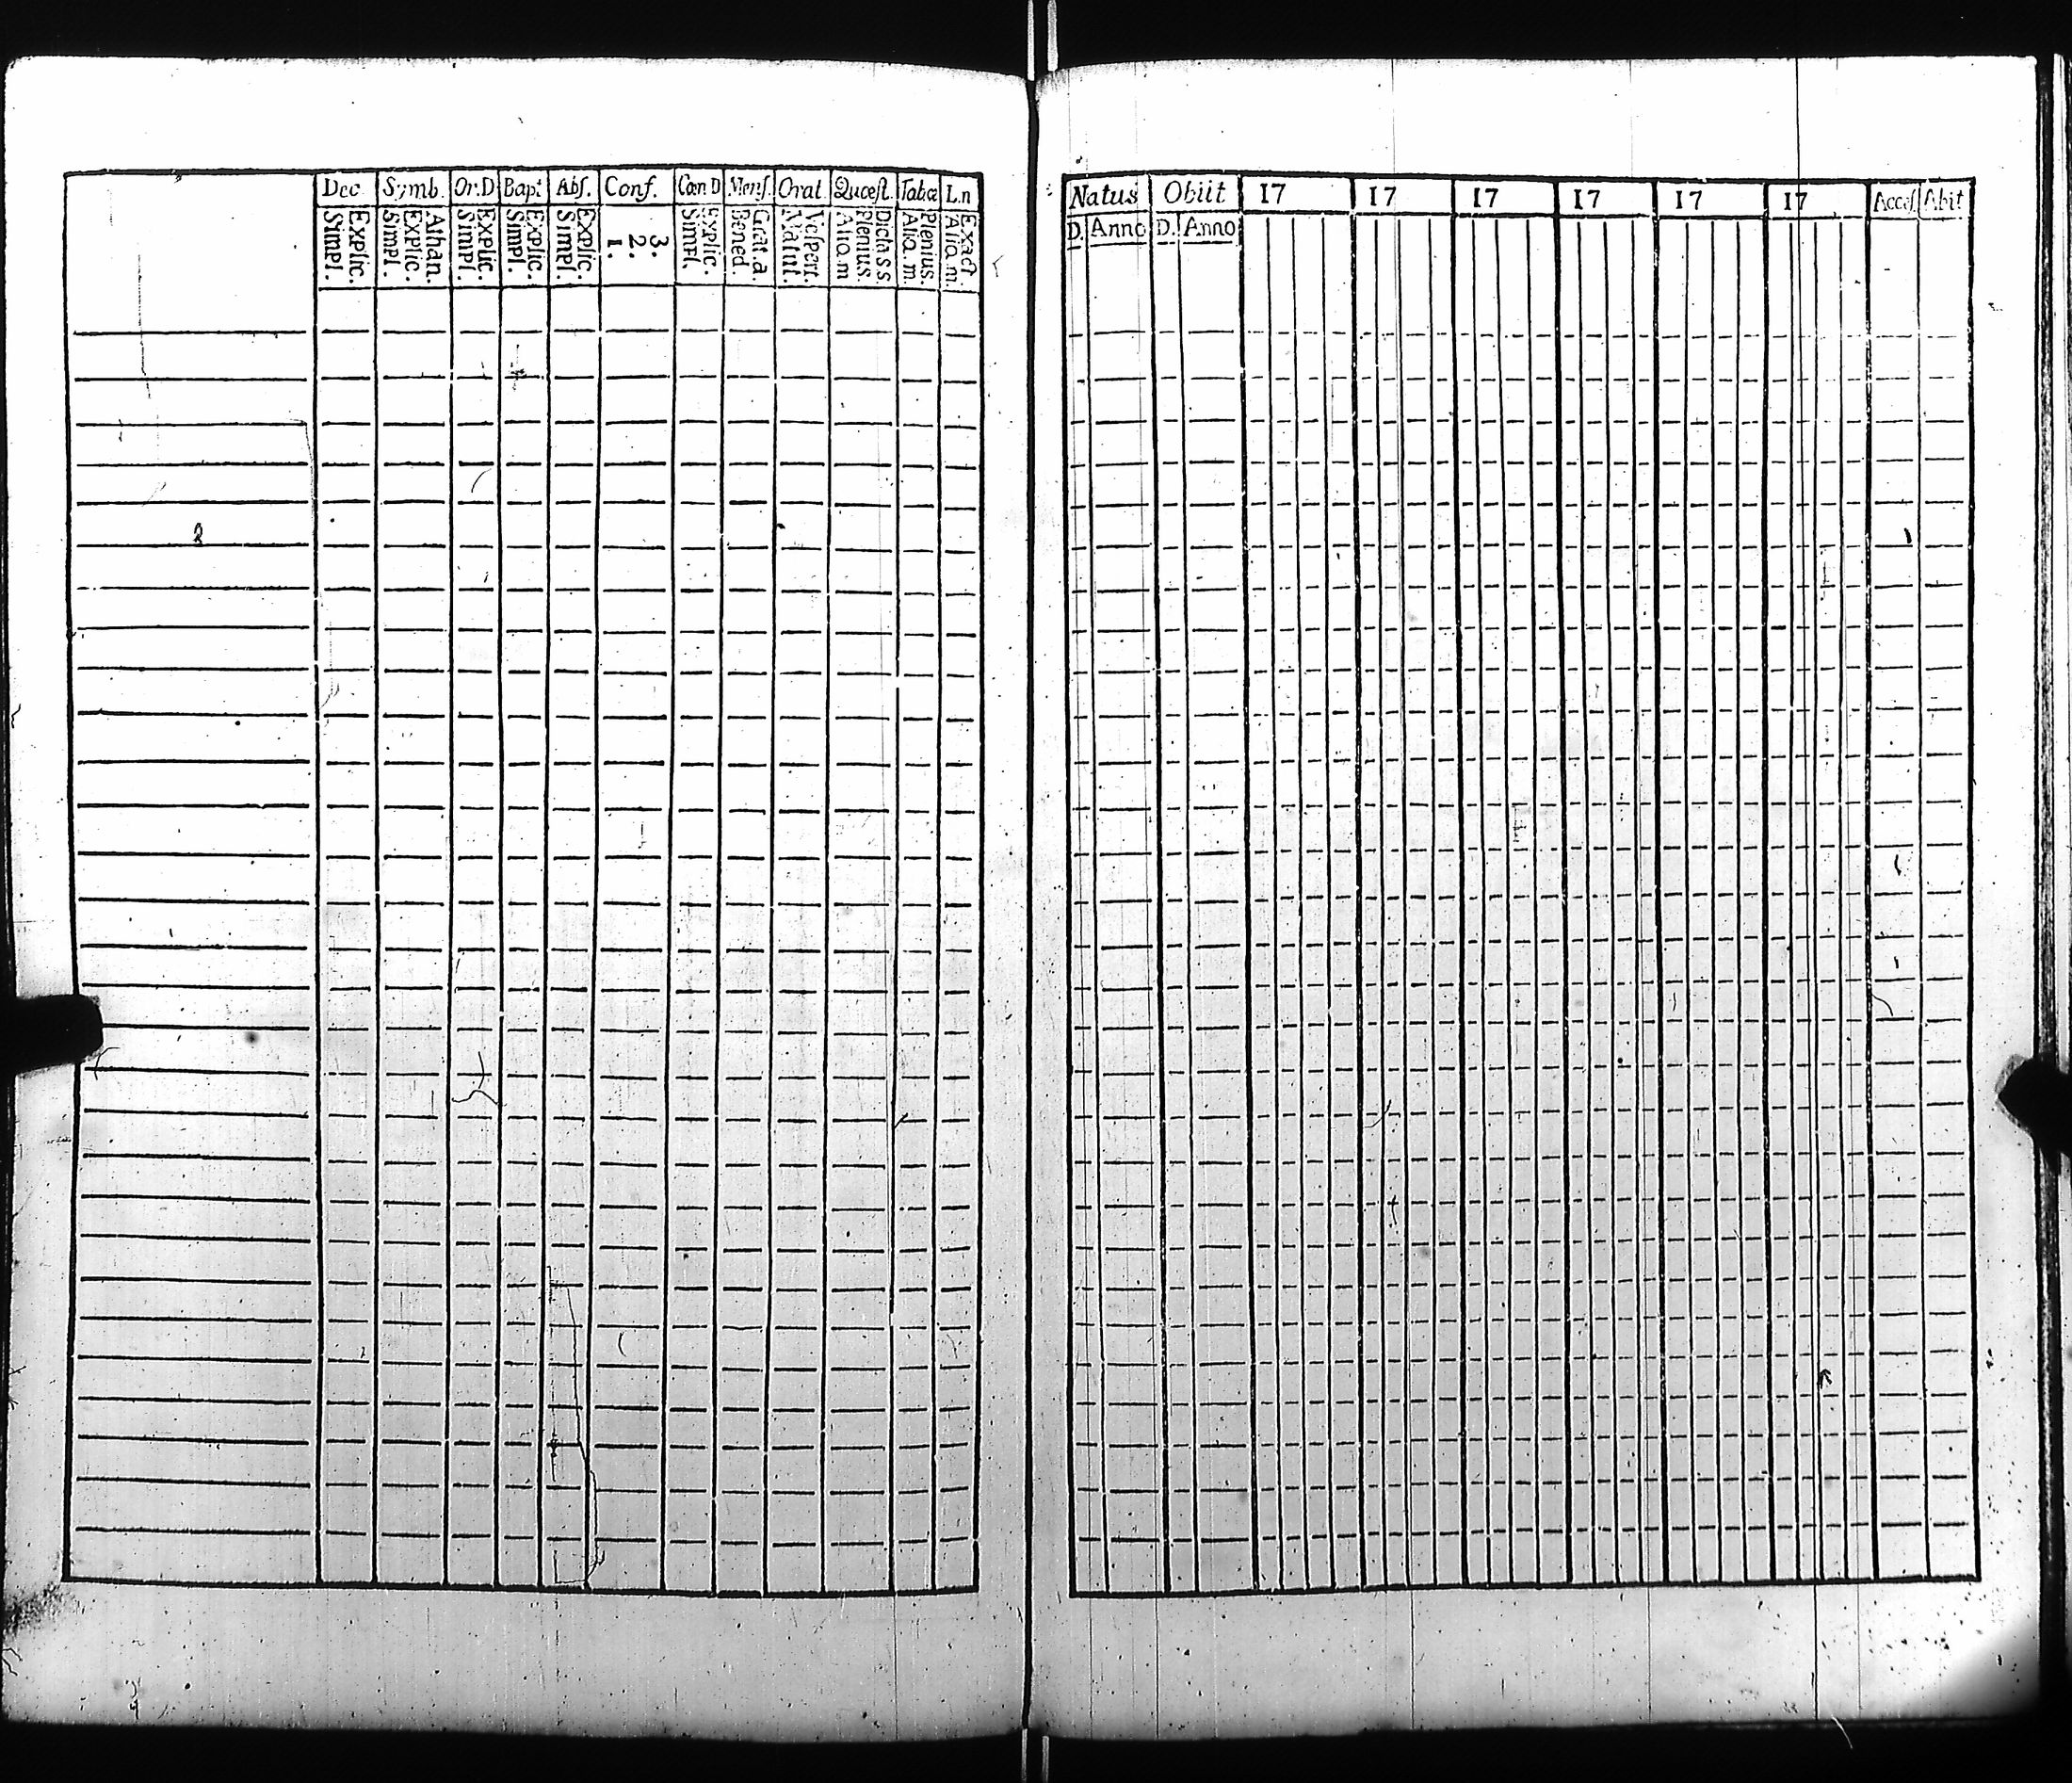 Dec. Symb. Or.D Bapt Abs. Conf. Cœn D Mens. Orat. Quœst. Tabœ L.n
Explic.
Simpl.
Athan.
Explic.
Simpl.
Explic.
Simpl.
Explic.
Simpl.
Explic.
Simpl.
3.
2.
1.
Explic.
Simpl.
Grat.a.
Bened.
Vespert.
Matut.
Dicta s.s.
Plenius.
Aliq.m
Plenius.
Aliq.m.
Exact
Aliq.m.
Natus Obiit 17 17 17 17 17 17 Acces. Abit
D. Anno D. Anno